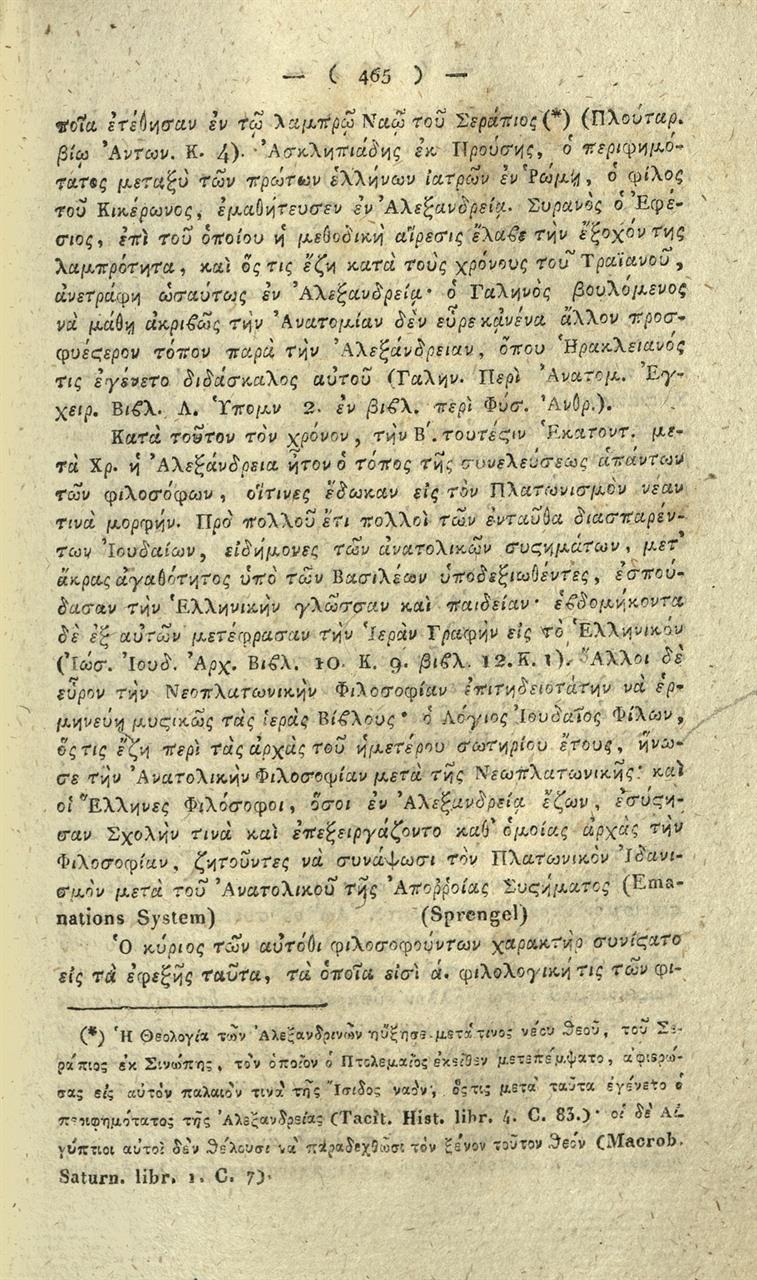 — ( 465 ) —
ποῖα ἐτέθησαν ἐν τῷ λαμπρῷ Ναῷ τοῦ Σεράπιος (*) (Πλούταρ.
βίῳ Ἀντων. Κ. 4). Ἀσκληπιάδης ἐκ Προύσης, ὁ περιφημό-
τατος μεταξὺ τῶν πρώτων ἑλλήνων ἰατρῶν ἐν Ῥώμῃ, ὁ φίλος
τοῦ Κικέρωνος, ἐμαθήτευσεν ἐν Ἀλεξανδρείᾳ. Συρανὸς ὁ Ἐφέ-
σιος, ἐπὶ τοῦ ὁποίου ἡ μεθοδικὴ αἵρεσις ἔλαβε τὴν ἔξοχόν της
λαμπρότητα, καὶ ὅς τις ἔζη κατὰ τοὺς χρόνους τοῦ Τραϊανοῦ,
ἀνετράφη ὡσαύτως ἐν Ἀλεξανδρείᾳ· ὁ Γαληνὸς βουλόμενος
νὰ μάθῃ ἀκριβῶς τὴν Ἀνατομίαν δὲν εὗρε κᾀνένα ἄλλον προσ-
φυέϛερον τόπον παρὰ τὴν Ἀλεξάνδρειαν, ὅπου Ἡρακλειανός
τις ἐγένετο διδάσκαλος αὐτοῦ (Γαλην. Περὶ Ἀνατομ. Ἐγ-
χειρ. Βιβλ. Λ. Ὑπομν 2. ἐν βιβλ. περὶ Φύσ. Ἀνθρ.).
Κατὰ τοῦτον τὸν χρόνον, τὴν Β΄. τουτέϛιν Ἑκατοντ. με-
τὰ Χρ. ἡ Ἀλεξάνδρεια ἦτον ὁ τόπος τῆς συνελεύσεως ἁπάντων
τῶν φιλοσόφων, οἵτινες ἔδωκαν εἰς τὸν Πλατωνισμὸν νέαν
τινὰ μορφήν. Πρὸ πολλοῦ ἔτι πολλοὶ τῶν ἐνταῦθα διασπαρέν-
των Ἰουδαίων, εἰδήμονες τῶν ἀνατολικῶν συϛημάτων, μετ'
ἄκρας ἀγαθότητος ὑπὸ τῶν Βασιλέων ὑποδεξιωθέντες, ἐσπού-
δασαν τὴν Ἑλληνικὴν γλῶσσαν καὶ παιδείαν· ἑβδομήκοντα
δὲ ἐξ αὐτῶν μετέφρασαν τὴν Ἱερὰν Γραφὴν εἰς τὸ Ἑλληνικόν
(Ἰώσ. Ἰουδ. Ἀρχ. Βιβλ. 10. Κ. 9. βιβλ. 12. Κ. 1). Ἄλλοι δὲ
εὗρον τὴν Νεοπλατωνικὴν Φιλοσοφίαν ἐπιτηδειοτάτην νὰ ἑρ-
μηνεύῃ μυϛικῶς τὰς ἱερὰς Βίβλους· ὁ Λόγιος Ἰουδαῖος Φίλων,
ὅς τις ἔζη περὶ τὰς ἀρχὰς τοῦ ἡμετέρου σωτηρίου ἔτους, ἥνω-
σε τὴν Ἀνατολικὴν Φιλοσοφίαν μετὰ τῆς Νεωπλατωνικῆς· καὶ
οἱ Ἕλληνες Φιλόσοφοι, ὅσοι ἐν Ἀλεξανδρείᾳ ἔζων, ἐσύϛη-
σαν Σχολήν τινὰ καὶ ἐπεξειργάζοντο καθ' ὁμοίας ἀρχὰς τὴν
Φιλοσοφίαν, ζητοῦντες νὰ συνάψωσι τὸν Πλατωνικὸν Ἰδανι-
σμὸν μετὰ τοῦ Ἀνατολικοῦ τῆς Ἀποῤῥοίας Συϛήματος (Ema-
nations System) (Sprengel)
Ὁ κύριος τῶν αὐτόθι φιλοσοφούντων χαρακτὴρ συνίϛατο
εἰς τὰ ἐφεξῆς ταῦτα, τὰ ὁποῖα εἰσὶ ά. φιλολογική τις τῶν φι-
(*) Ἡ Θεολογία τῶν Ἀλεξανδρινῶν ηὔξησε μετά τινος νέου Θεοῦ, τοῦ Σε-
ράπιος ἐκ Σινώπης, τὸν ὁποῖον ὁ Πτολεμαῖος ἐκεῖθεν μετεπέμψατο, ἀφιερώ-
σας εἰς αὐτὸν παλαιόν τινα τῆς Ἴσιδος ναὸν, ὅςτις μετὰ ταῦτα ἐγένετο ὁ
περιφημότατος τῆς Ἀλεξανδρείας (Tacit. Hist. libr. 4. C. 83.)· οἱ δὲ Αἰ-
γύπτιοι αὐτοὶ δὲν θέλουσι νὰ παραδεχθῶσι τὸν ξένον τοῦτον Θεόν (Macrob.
Saturn. libr. 1. C. 7).